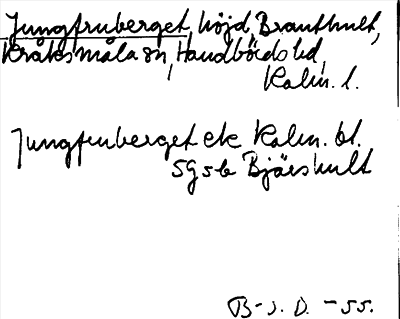 Jungfruberget, höjd, Branthult,
Kråksmåla sn, Handbörds hd,
Kalm. l.
Jungfruberget ek Kalm. bl.
5G5b Bjäershult
B-J. D. -55.